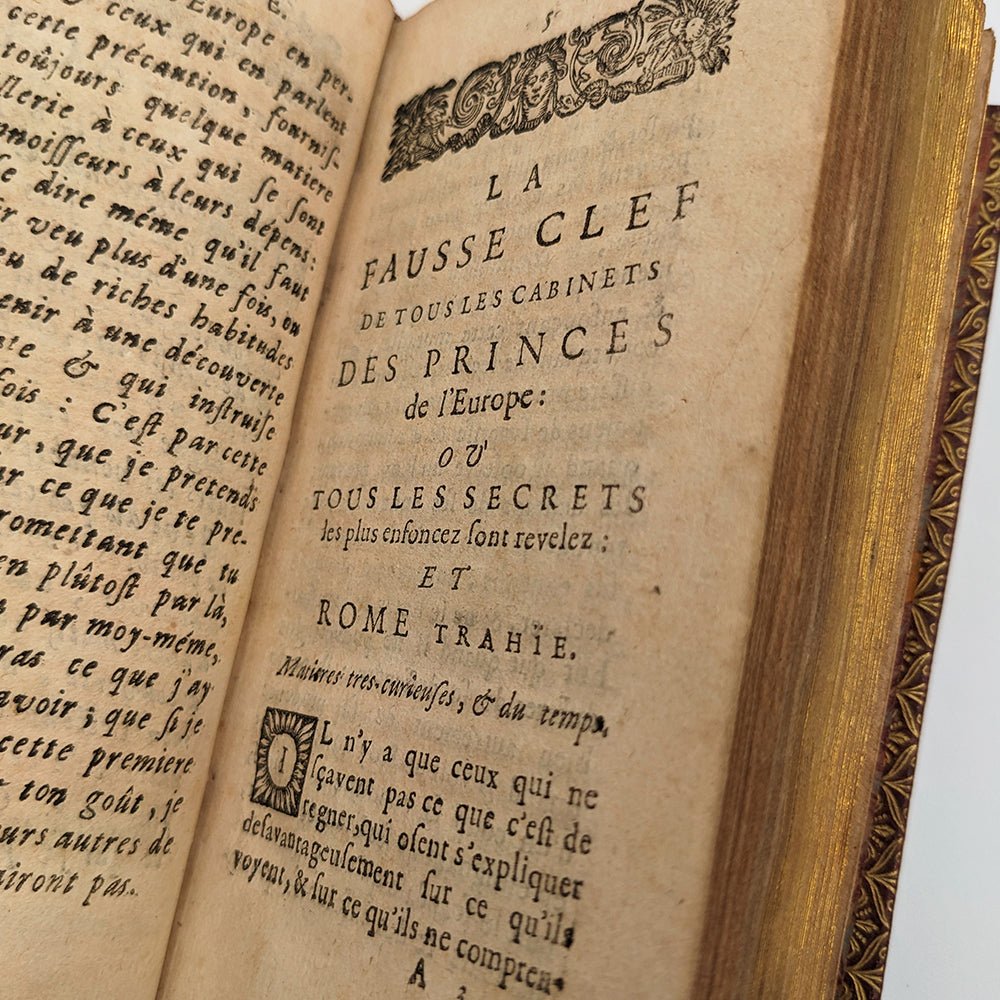 Europe en per-
ceux qui en parlent
cette précaution, fournis-
toûjours quelque matiere
à ceux qui se sont
à leurs dépens:
dire méme qu'il faut
veu plus d'une fois, ou
de riches habitudes
à une découverte
& qui instruise
fois : C'est par cette
que je pretends
ce que je te pre-
que tu
plûtost par là,
par moy-méme,
ce que j'ay
; que si je
cette premiere
ton goût, je
autres de
pas.
5
LA
FAUSSE CLEF
DE TOUS LES CABINETS
DES PRINCES
de l'Europe:
OU
TOUS LES SECRETS
les plus enfoncez sont revelez :
ET
ROME TRAHÏE.
Matieres tres-curieuses, & du temps.
IL n'y a que ceux qui ne
sçavent pas ce que c'est de
regner, qui osent s'expliquer
desavantageusement sur ce qu'ils
voyent, & sur ce qu'ils ne compren-
A 3